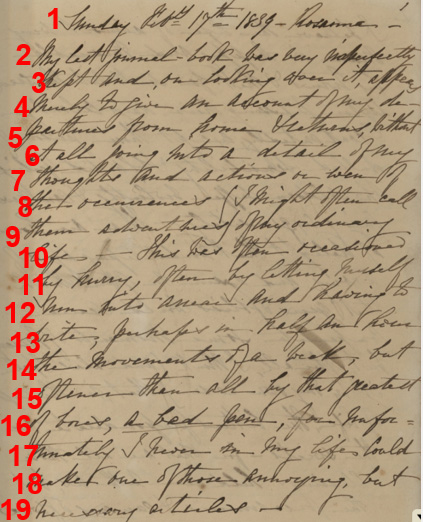 1 Sunday Feb.y 17th 1839 - Roxanna -
2 My last journal-book was very imperfectly
3 kept and, on looking over it, appears
4 merely to give an account of my de-
5 partures from home & returns, without
6 at all going into a detail of my
7 thoughts and actions or even of
8 the occurrences (I might often call
9 them adventures) of my ordinary
10 life - This was often occasioned
11 by hurry, often by letting myself
12 run into arrears and having to
13 write, perhaps in half an hour
14 the movements of a week, but
15 oftener than all by that greatest
16 of bores, a bad pen, for unfor-
17 tunately I never in my life could
18 make one of those annoying, but
19 necessary articles -